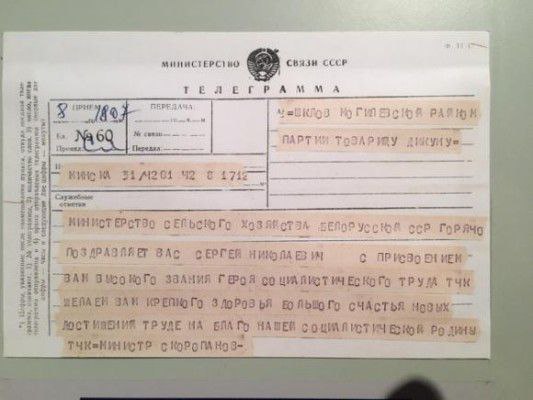 МИНИСТЕРСТВО СВЯЗИ СССР
ТЕЛЕГРАММА
ПРИЕМ:
8 1807
Бл. №60
Принял:
ПЕРЕДАЧА:
№ связи
Передал:
=ШКЛОВ МОГИЛЕВСКОЙ РАЙКОМ
ПАРТИИ ТОВАРИЩУ ДИКУНУ=
МИНСКА 31/4201 42 8 1712
Служебные
отметки
МИНИСТЕРСТВО СЕЛЬСКОГО ХОЗЯЙСТВА БЕЛОРУССКОЙ ССР ГОРЯЧО
ПОЗДРАВЛЯЕТ ВАС СЕРГЕЙ НИКОЛАЕВИЧ С ПРИСВОЕНИЕМ
ВАМ ВЫСОКОГО ЗВАНИЯ ГЕРОЯ СОЦИАЛИСТИЧЕСКОГО ТРУДА ТЧК
ЖЕЛАЕМ ВАМ КРЕПКОГО ЗДОРОВЬЯ БОЛЬШОГО СЧАСТЬЯ НОВЫХ
ДОСТИЖЕНИЯ ТРУДЕ НА БЛАГО НАШЕЙ СОЦИАЛИСТИЧЕСКОЙ РОДИНЫ
ТЧК=МИНИСТР СКОРОПАНОВ-